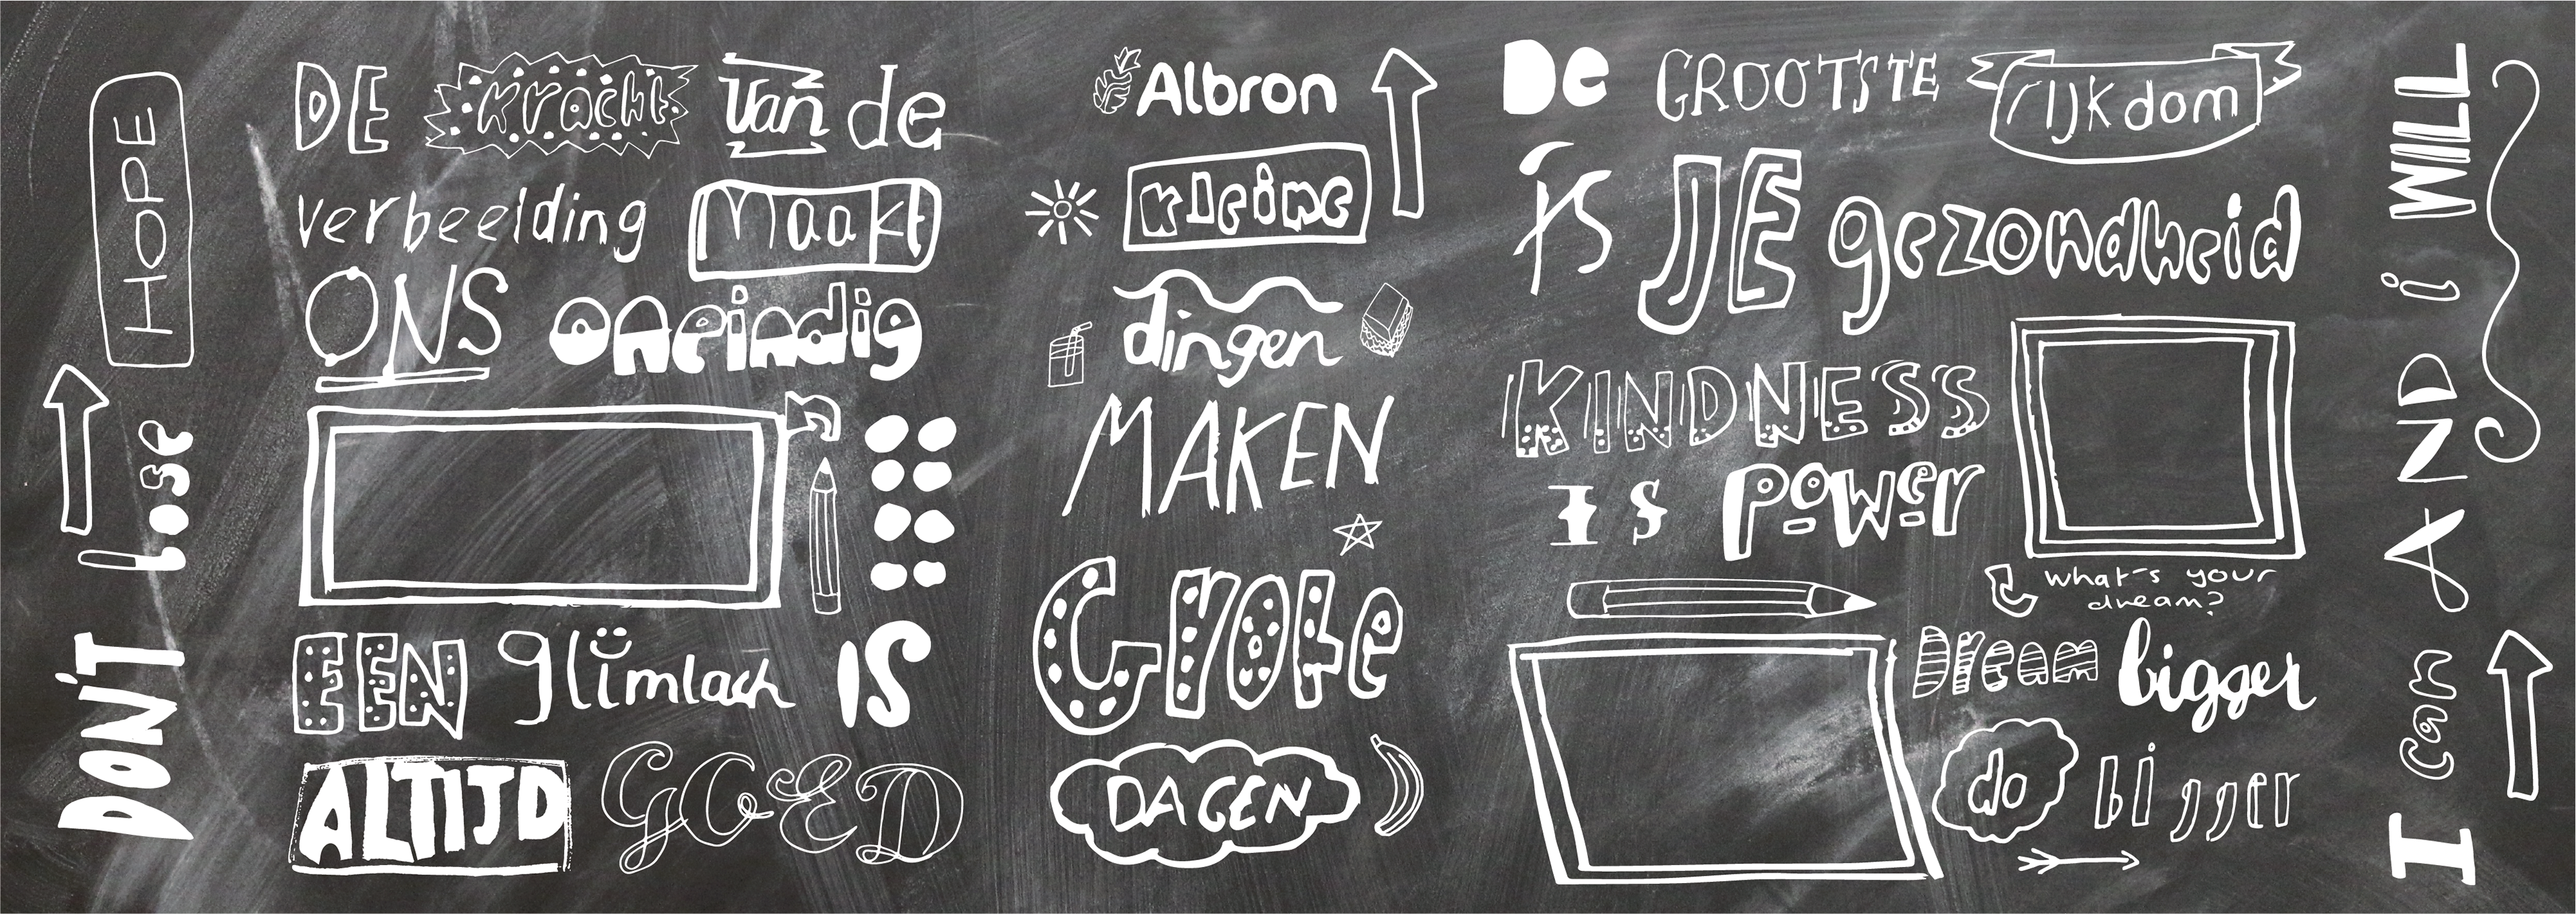 DON'T lose HOPE
DE kracht van de
verbeelding maakt
ONS oneindig
EEN glimlach IS
ALTIJD GOED
Albron
kleine
dingen
MAKEN
Grote
DAGEN
De GROOTSTE rijkdom
is JE gezondheid
KINDNESS
IS POWer
what's your
dream?
Dream bigger
do bigger
I can AND i WILL